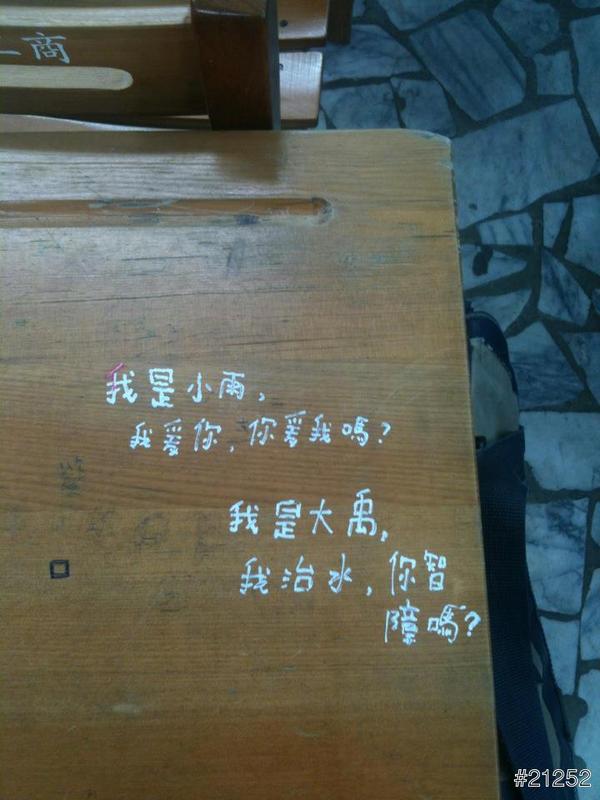 商
我是小雨，
我愛你，你愛我嗎？
我是大禹，
我治水，你智
障嗎？
#21252